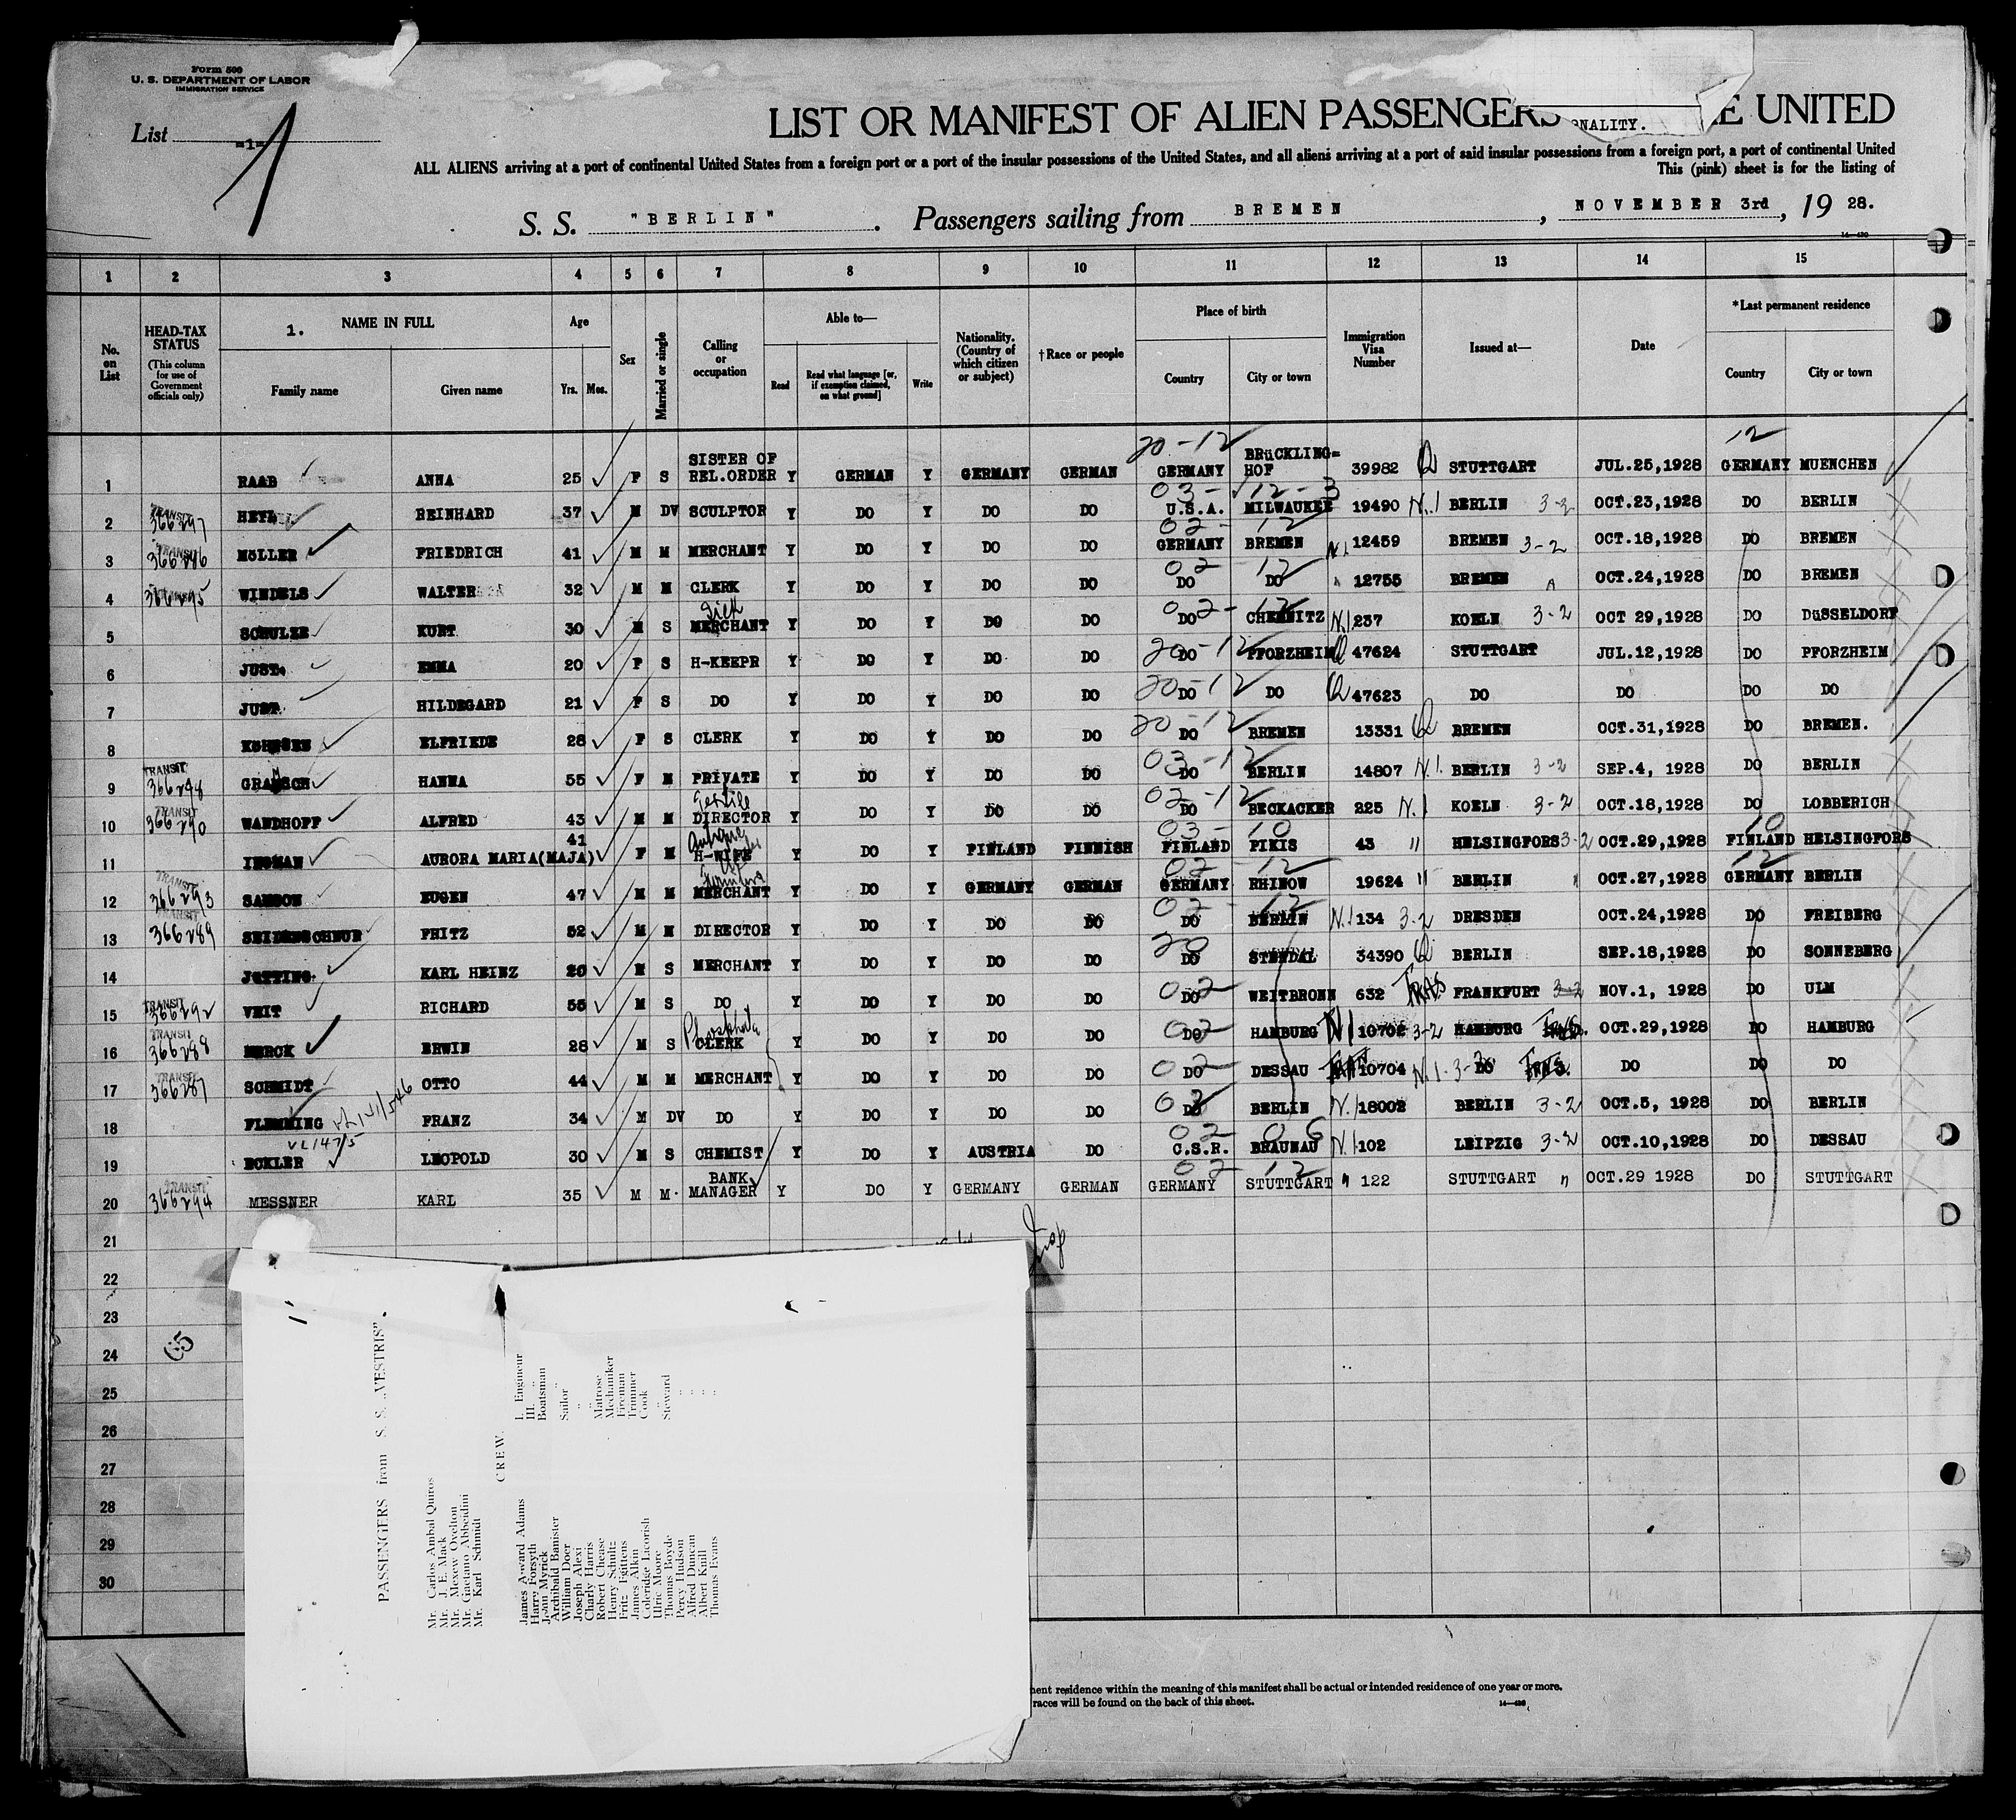 Form 500
U. S. DEPARTMENT OF LABOR
IMMIGRATION SERVICE
List -1-
1
LIST OR MANIFEST OF ALIEN PASSENGERS E UNITED
ONALITY.
ALL ALIENS arriving at a port of continental United States from a foreign port or a port of the insular possessions of the United States, and all aliens arriving at a port of said insular possessions from a foreign port, a port of continental United
This (pink) sheet is for the listing of
S. S. "BERLIN". Passengers sailing from BREMEN, NOVEMBER 3rd, 19 28.
1 2 3 4 5 6 7 8 9 10 11 12 13 14 15
No. on List
HEAD-TAX STATUS
(This column for use of Government officials only)
1. NAME IN FULL
Family name Given name
Age
Yrs. Mos.
Sex
Married or single
Calling or occupation
Able to—
Read
Read what language [or, if exemption claimed, on what ground]
Write
Nationality. (Country of which citizen or subject)
†Race or people
Place of birth
Country City or town
Immigration Visa Number
Issued at—
Date
*Last permanent residence
Country City or town
1 RAAB ANNA 25 F S SISTER OF REL.ORDER Y GERMAN Y GERMANY GERMAN 20-12 GERMANY BRÜCKLING=HOF 39982 Q STUTTGART JUL.25,1928 12 GERMANY MUENCHEN
2 TRANSIT 366297 REINHARD 37 M DV SCULPTOR Y DO Y DO DO 03-12-3 U.S.A. MILWAUKEE 19490 N.1 BERLIN 3-2 OCT.23,1928 DO BERLIN
3 TRANSIT 366286 MÖLLER FRIEDRICH 41 M M MERCHANT Y DO Y DO DO 02-12 GERMANY BREMEN N.1 12459 BREMEN 3-2 OCT.18,1928 DO BREMEN
4 366295 WINDELS WALTER 32 M M CLERK Y DO Y DO DO 02-12 DO DO 12755 BREMEN OCT.24,1928 DO BREMEN
5 SCHULZE KURT 30 M S MERCHANT Y DO Y DO DO 02-12 DO CHEMNITZ N.1 237 KOELN 3-2 OCT 29,1928 DO DÜSSELDORF
6 JUST. EMMA 20 F S H-KEEPR Y DO Y DO DO 20-12 DO PFORZHEIM Q 47624 STUTTGART JUL.12,1928 DO PFORZHEIM
7 JUST. HILDEGARD 21 F S DO Y DO Y DO DO 20-12 DO DO Q 47623 DO DO DO DO
8 ELFRIEDE 28 F S CLERK Y DO Y DO DO 20-12 DO BREMEN 13331 Q BREMEN OCT.31,1928 DO BREMEN.
9 TRANSIT 366298 HANNA 55 F M PRIVATE Y DO Y DO DO 03-12 DO BERLIN 14807 N.1. BERLIN 3-2 SEP.4, 1928 DO BERLIN
10 TRANSIT 366290 WANDHOFF ALFRED 43 M M DIRECTOR Y DO Y DO DO 02-12 DO BECKACKER 225 N.1 KOELN 3-2 OCT.18,1928 DO LOBBERICH
11 INGMAN AURORA MARIA(MAJA) 41 F M H-WIFE Y DO Y FINLAND FINNISH 03-10 FINLAND PIKIS 43 " HELSINGFORS 3-2 OCT.29,1928 10 FINLAND HELSINGFORS
12 TRANSIT 366293 SAMSON EUGEN 47 M M MERCHANT Y DO Y GERMANY GERMAN 02-12 GERMANY RHINOW 19624 " BERLIN " OCT.27,1928 12 GERMANY BERLIN
13 TRANSIT 366289 SEIDENSCHNUR FRITZ 52 M M DIRECTOR Y DO Y DO DO 02-12 DO BERLIN N.1 134 3-2 DRESDEN OCT.24,1928 DO FREIBERG
14 JÜTTING. KARL HEINZ 20 M S MERCHANT Y DO Y DO DO 20 DO STENDAL 34390 Q BERLIN SEP.18,1928 DO SONNEBERG
15 TRANSIT 366292 VEIT RICHARD 55 M S DO Y DO Y DO DO 02 DO WEITBRONN 632 TRAS FRANKFURT 3-2 NOV.1, 1928 DO ULM
16 TRANSIT 366288 MERCK ERWIN 28 M S Phosphate CLERK Y DO Y DO DO 02 DO HAMBURG N1 10702 3-2 HAMBURG TRNS. OCT.29,1928 DO HAMBURG
17 TRANSIT 366287 SCHMIDT OTTO 44 M M MERCHANT Y DO Y DO DO 02 DO DESSAU 10704 N.1. 3-2 DO TRNS. DO DO DO
18 FLEMMING FRANZ 34 M DV DO Y DO Y DO DO 02 DO BERLIN N.1 18002 BERLIN 3-2 OCT.5, 1928 DO BERLIN
19 VL 147/5 ECKLER LEOPOLD 30 M S CHEMIST Y DO Y AUSTRIA DO 02 06 C.S.R. BRAUNAU N.1 102 LEIPZIG 3-2 OCT.10,1928 DO DESSAU
20 TRANSIT 366294 MESSNER KARL 35 M M. BANK MANAGER Y DO Y GERMANY GERMAN 02 12 GERMANY STUTTGART " 122 STUTTGART " OCT.29 1928 DO STUTTGART
21
22
23
24
25
26
27
28
29
30
PASSENGERS from S. S. „VESTRIS".
Mr. Carlos Anibal Quiros
Mr. J. E. Mack
Mr. Mexew Ovelton
Mr. Gaetano Abbeidini
Mr. Karl Schmidt
CREW.
James Award Adams I. Engineur
Harry Forsyth III. "
Jean Myrick Boatsman
Archibald Bannister "
William Doer Sailor
Joseph Alexi "
Charly Harris "
Robert Chease Matrose
Henry Schultz Mechaniker
Fritz Egittens Fireman
James Alkin Trimmer
Coleridge Lacorish Cook
Ulric Moore "
Thomas Boyde Steward
Percy Hudson "
Alfred Duncan "
Albert Knill "
Thomas Evans "
nent residence within the meaning of this manifest shall be actual or intended residence of one year or more.
races will be found on the back of this sheet.